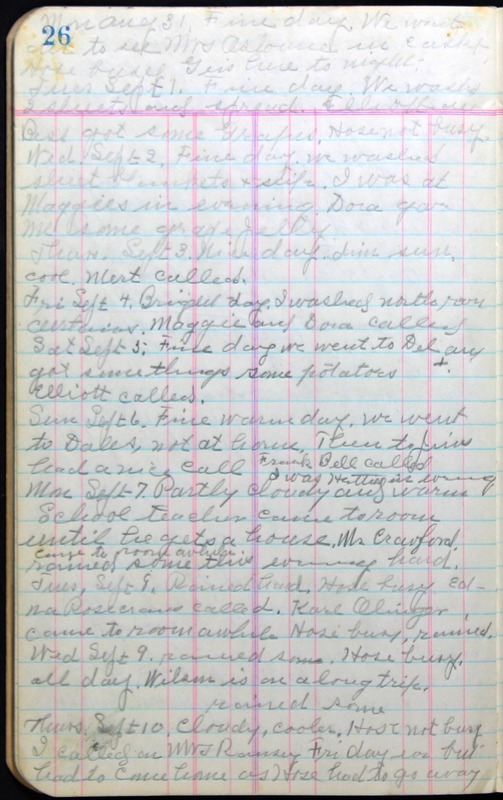 26
Mon Aug 31. Fine day. We went
out to see Mrs Osborne in
Hose busy. is here to night.
Tues Sept 1. Fine day. We washed
2 sheets and spread.
Bess got some Grapes, Hose not busy.
Wed. Sept 2. Fine day. we washed
sheet blankets & slip. I was at
Maggies in evening Dora gave
me some grape Jelly.
Thurs. Sept 3. Nice day. dim sun,
cool. Mert called.
Fri Sept 4. Bright day. I washed north room
curtains. Maggie and Dora called
Sat Sept 5: Fine day we went to Del and
got some things some potatoes +.
Elliott called.
Sun Sept 6. Fine warm day. we went
to Dales, not at home, Then to
had a nice call Frank Bell called
I was Hatties in evening
Mon Sept 7. Partly cloudy and warm
School teacher came to room
until he gets a house, Mr. Crawford.
came to room awhile.
rained some this evening hard.
Tues, Sept 8. Rained hard, Hose busy Ed-
na Rosecrans called. Karl Olinger
came to room awhile Hose busy, rained.
Wed Sept 9. rained some. Hose busy.
all day. Wilson is on a long trip.
rained some
Thurs. Sept 10, Cloudy, cooler, Hose not busy
I called on Mrs Ramsey Friday eve but
had to come home as Hose had to go away